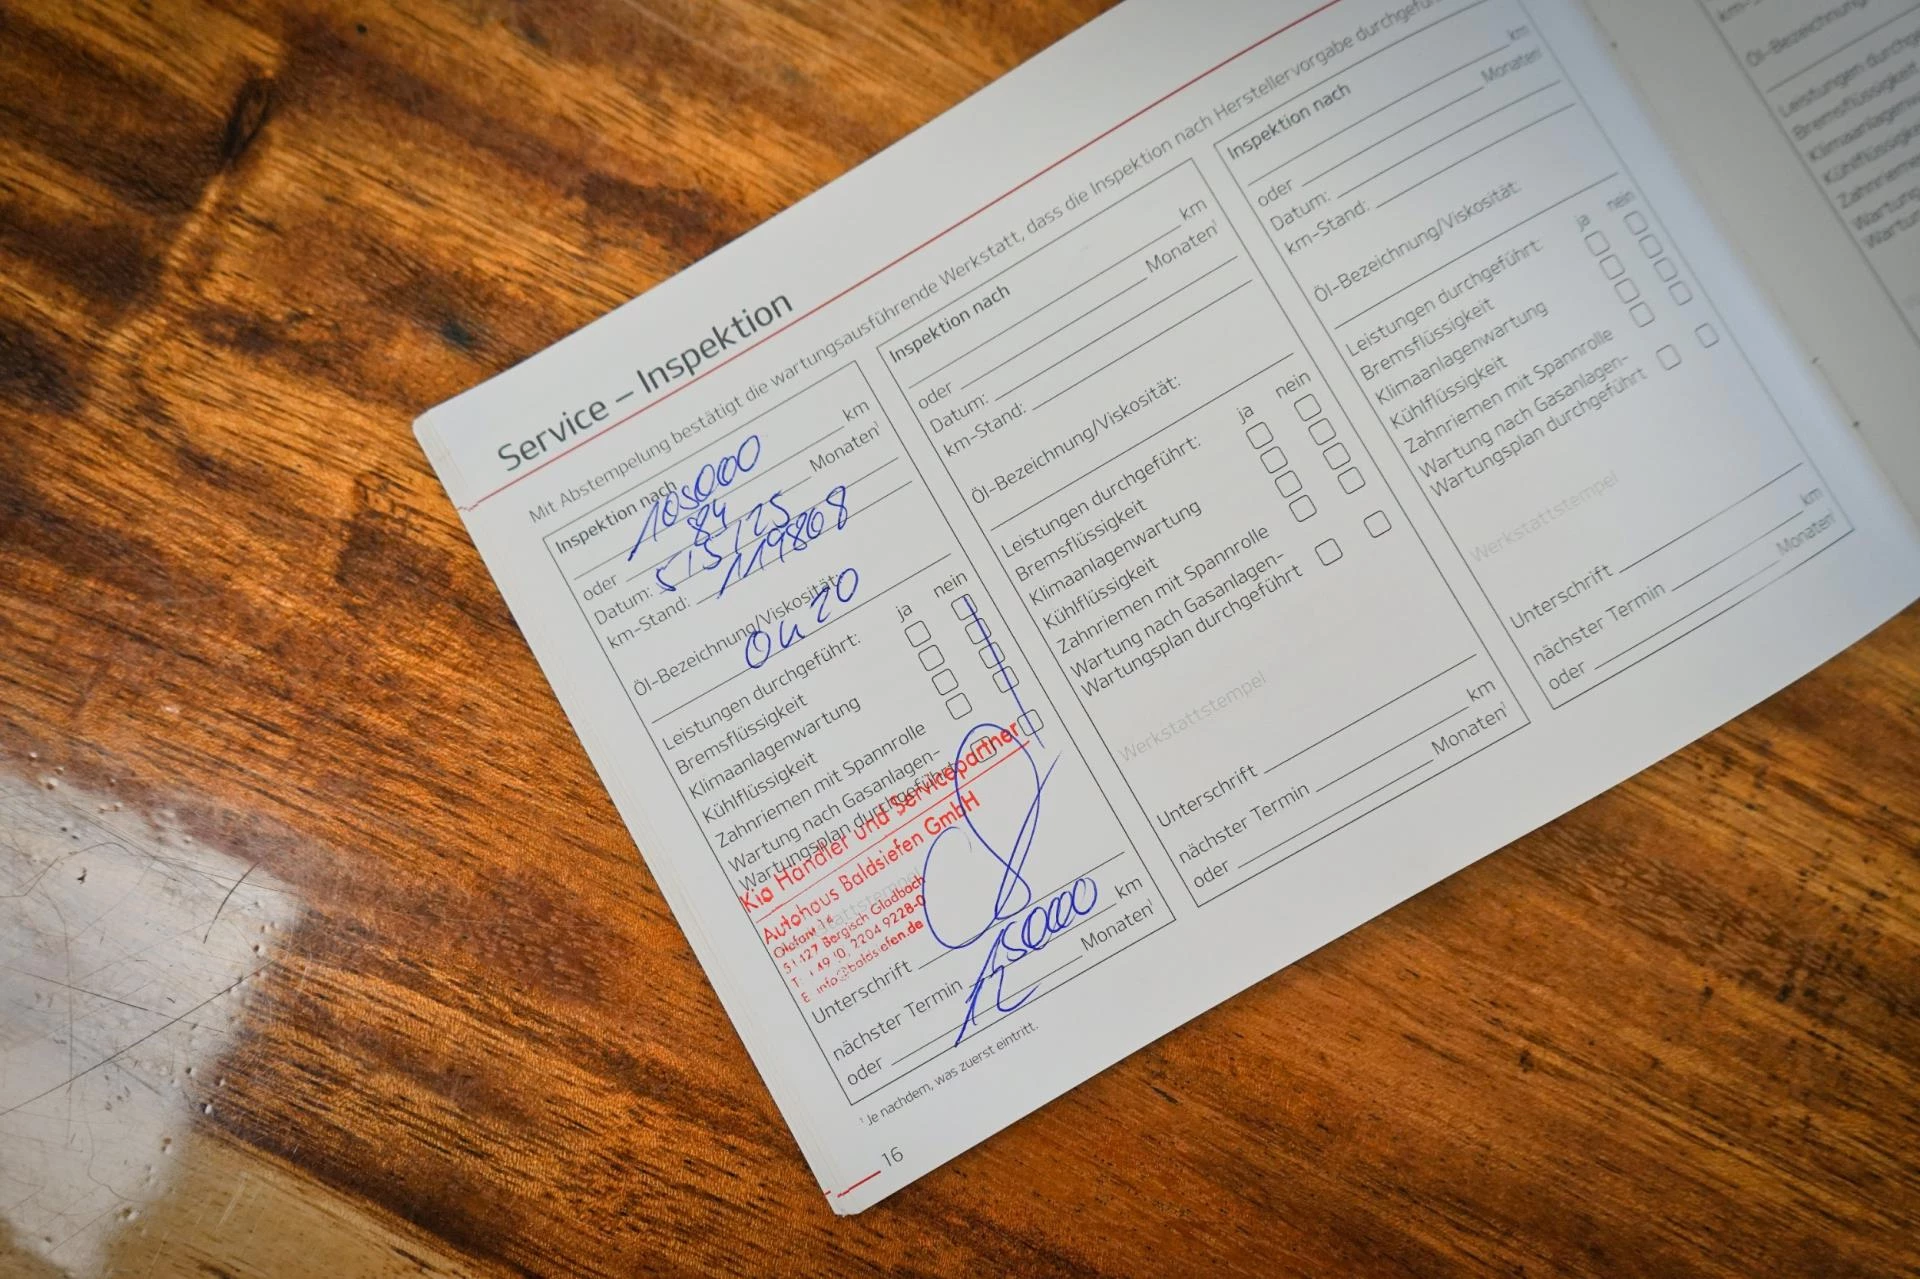 Service – Inspektion
Mit Abstempelung bestätigt die wartungsausführende Werkstatt, dass die Inspektion nach Herstellervorgabe durchgeführ
Inspektion nach 105000 km
oder 84 Monaten¹
Datum: 5/5/25
km-Stand: 119808
Öl-Bezeichnung/Viskosität:
0W20
ja nein
Leistungen durchgeführt:
Bremsflüssigkeit
Klimaanlagenwartung
Kühlflüssigkeit
Zahnriemen mit Spannrolle
Wartung nach Gasanlagen-
Wartungsplan durchgeführt
Kia Händler und Servicepartner
Autohaus Baldsiefen GmbH
51427 Bergisch Gladbach
2204 9228-0
E info@baldsiefen.de
Unterschrift
nächster Termin 15000 km
oder 12 Monaten¹
¹ Je nachdem, was zuerst eintritt.
16
Inspektion nach
km
oder Monaten¹
Datum:
km-Stand:
Öl-Bezeichnung/Viskosität:
ja nein
Leistungen durchgeführt:
Bremsflüssigkeit
Klimaanlagenwartung
Kühlflüssigkeit
Zahnriemen mit Spannrolle
Wartung nach Gasanlagen-
Wartungsplan durchgeführt
Werkstattstempel
Unterschrift
nächster Termin km
oder Monaten¹
Inspektion nach
km
oder Monaten¹
Datum:
km-Stand:
Öl-Bezeichnung/Viskosität:
ja nein
Leistungen durchgeführt:
Bremsflüssigkeit
Klimaanlagenwartung
Kühlflüssigkeit
Zahnriemen mit Spannrolle
Wartung nach Gasanlagen-
Wartungsplan durchgeführt
Werkstattstempel
Unterschrift
nächster Termin km
oder Monaten¹